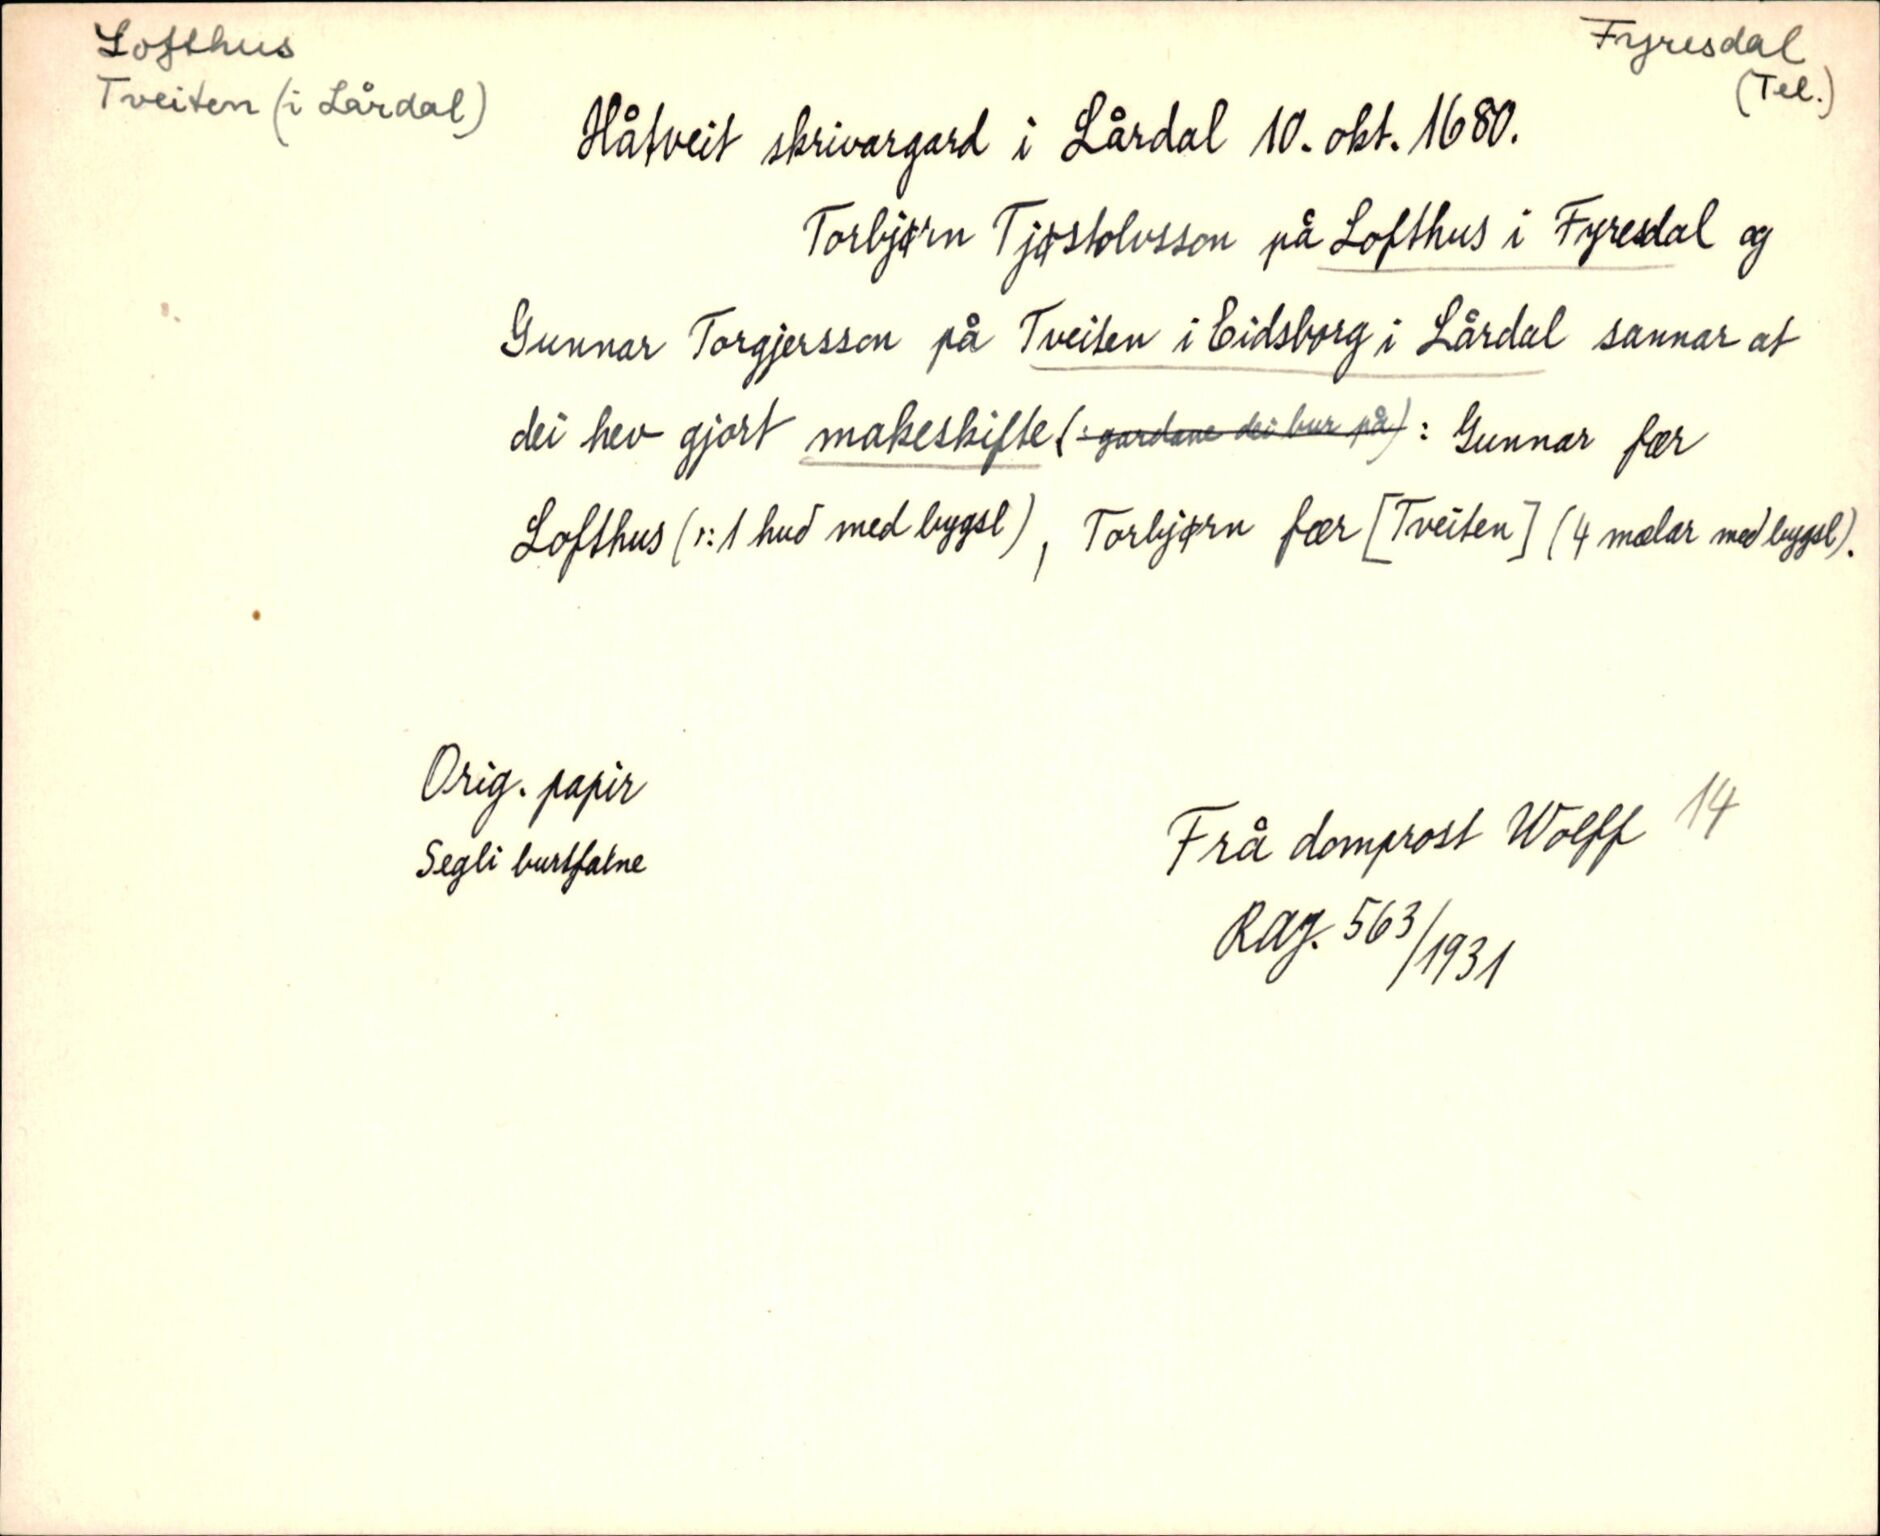 Lofthus
Tveiten (i Lårdal)
Fyresdal
(Tel.)
Håtveit skrivargard i Lårdal 10. okt. 1680.
Torbjørn Tjøstolvsson på Lofthus i Fyresdal og
Gunnar Torgjersson på Tveiten i Eidsborg i Lårdal sannar at
dei hev gjort makeskifte (: gardane dei bur på) : Gunnar fær
Lofthus (ɔ: 1 hud med bygsl), Torbjørn fær [Tveiten] (4 mælar med bygsl).
Orig. papir
Segli burtfalne
Frå domprost Wolff 14
Rag. 563/1931